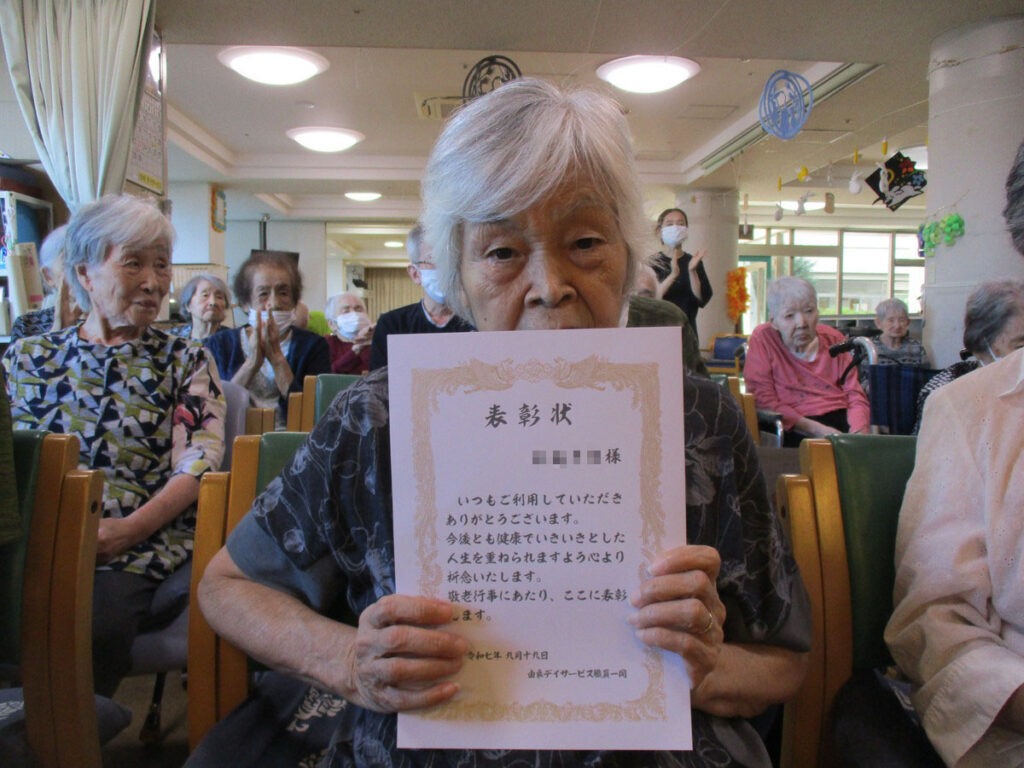 表彰状
様
いつもご利用していただき
ありがとうございます。
今後とも健康でいきいきとした
人生を重ねられますよう心より
祈念いたします。
敬老行事にあたり、ここに表彰
します。
令和七年 九月十九日
デイサービス職員一同